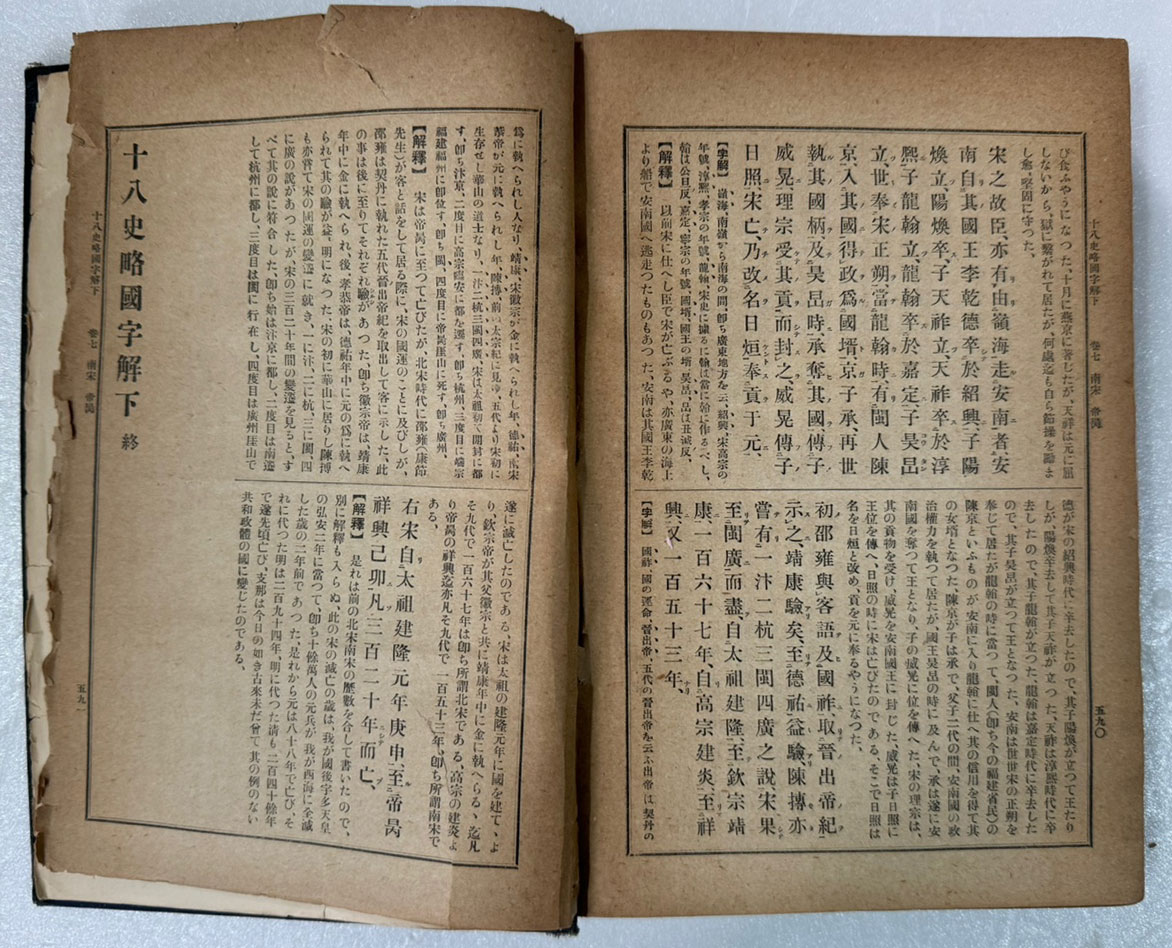 十八史略國字解下　卷七　南宋　帝昺
五九〇
び食ふやうになつた、十月に燕京に著したが、天祥は元に屈
しないから、獄に繫がれて居たが、何處迄も自ら節操を勵ま
し奮、堅固に守つた。
宋之故臣、亦有由嶺海走安南者、安
南自其國王李乾德卒於紹興、子陽
煥立、陽煥卒、子天祚立、天祚卒於淳
熙、子龍翰立、龍翰卒於嘉定、子昊旵
立、世奉宋正朔、當龍翰時、有閩人陳
京、入其國得政爲國壻、京子承、再世
執其國柄、及昊旵時、承奪其國、傳子
威晃、理宗受其貢、而封之、威晃傳子
日照、宋亡、乃改名日烜、奉貢于元、
【字解】　嶺海、南嶺から南海の間、卽ち廣東地方を云、紹興、宋高宗の
年號、淳熙、孝宗の年號、龍翰、宋史に據るに翰は當に𦒋に作るべし、
翰は公旦反、嘉定、寧宗の年號、國壻、國王の壻、吳旵、旵は丑減反、
【解釋】　以前宋に仕へし臣で宋が亡ぶるや、亦廣東の海上
より船で安南國へ逃走つたものもあつた、安南は其國王李乾
德が宋の紹興時代に卒去したので、其子陽煥が立つて王たり
しが、陽煥卒去して其子天祚が立つた、天祚は淳熙時代に卒
去したので、其子龍翰が立つた、龍翰は嘉定時代に卒去した
ので、其子昊旵が立つて王となつた、安南は世世宋の正朔を
奉じて居たが龍翰の時に當つて、閩人(卽ち今の福建省民)の
陳京といふものが安南に入り龍翰に仕へ其の信用を得て其
の女壻となつた、陳京が子は承で、父子二代の間、安南國の政
治權力を執つて居たが、國王昊旵の時に及んで、承は遂に安
南國を奪つて王となり、子の威晃に位を傳へた、宋の理宗は、
其の貢物を受け、威晃を安南國王に封じた、威晃は子日照に
王位を傳へ、日照の時に宋は亡びたのである、そこで日照は
名を日烜と改め、貢を元に奉るやうになつた。
初邵雍與客語及國祚、取晉出帝紀
示之、靖康驗矣、至德祐益驗、陳摶亦
嘗有一汴二杭三閩四廣之說、宋果
至閩廣而盡、自太祖建隆、至欽宗靖
康、一百六十七年、自高宗建炎、至祥
興、又一百五十三年、
【字解】　國祚、國の運命、晉出帝、五代の晉出帝を云ふ出帝は契丹の
爲に執へられし人なり、靖康、宋徽宗が金に執へられし年、德祐、南宋
恭帝が元に執へられし年、陳摶、前の太宗紀に見ゆ、五代より宋初に
生存せし華山の道士なり、一汴二杭三閩四廣、宋は太祖初て開封に都
す、卽ち汴京、二度目に高宗臨安に都を遷す、卽ち杭州、三度目に端宗
福建福州に卽位す、卽ち閩、四度目に帝昺崖山に死す、卽ち廣州、
【解釋】　宋は帝昺に至つて亡びたが、北宋時代に邵雍(康節
先生)が客と話をして居る際に、宋の國運のことに及びしが、
邵雍は契丹に執れた五代晉出帝紀を取出して客に示した、此
の事は後に至りてそれぞれ驗があつた、卽ち徽宗帝は、靖康
年中に金に執へられ後、孝恭帝は、德祐年中に元の爲に執へ
られて其の驗が益〻明になつた、宋の初に華山に居りし陳摶
も亦嘗て宋の國運の變遷に就き、一に汴、二に杭、三に閩、四
に廣の說があつたが、宋の三百二十年間の變遷を見ると、す
べて其の說に符合した、卽ち始は汴京に都し、二度目は南遷
して杭州に都し、三度目は閩に行在し、四度目は廣州厓山で
遂に滅亡したのである、宋は太祖の建隆元年に國を建て、よ
り、欽宗帝が其父徽宗と共に靖康年中に金に執へらるゝ迄凡
そ九代で一百六十七年は卽ち所謂北宋である、高宗の建炎よ
り帝昺の祥興迄亦凡そ九代で一百五十三年、卽ち所謂南宋で
ある。
右宋自太祖建隆元年庚申、至帝昺
祥興己卯、凡三百二十年而亡、
【解釋】　是れは前の北宋南宋の歷數を合して書いたので、
別に解釋も入らぬ、此の宋の滅亡の歲は、我が國後宇多天皇
の弘安二年に當つて、卽ち十餘萬人の元兵が我が西海に全滅
した歲の二年前であつた是れから元は八十八年で亡び、そ
れに代つた明は二百九十四年、明に代つた淸も二百四十餘年
で遂先頃亡び、支那は今日の如き古來未だ曾て其の例のない
共和政體の國に變じたのである。
十八史略國字解下　終
十八史略國字解下　卷七　南宋　帝昺
五九一